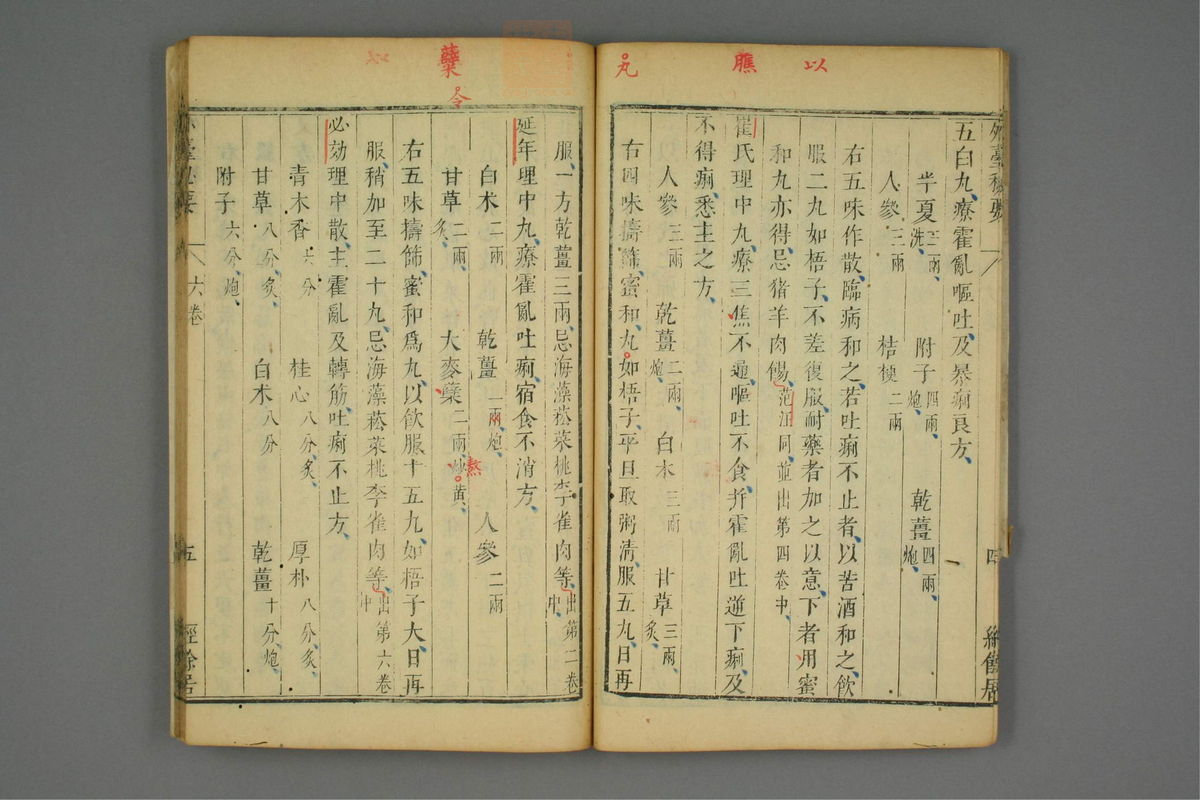 以
膲
丸
五白丸療霍亂嘔吐及暴痢良方
半夏三兩洗 附子四兩炮 乾薑四兩炮
人參三兩 桔梗二兩
右五味作散臨病和之若吐痢不止者以苦酒和之飲
服二丸如梧子不差復服耐藥者加之以意下者用蜜
和丸亦得忌猪羊肉餳范汪同並出第四卷中
崔氏理中丸療三焦不通嘔吐不食并霍亂吐逆下痢及
不得痢悉主之方
人參三兩 乾薑二兩炮 白术三兩 甘草三兩炙
右四味擣篩蜜和丸如梧子平旦取粥清服五丸日再
四
經餘居
蘖
令
如
服一方乾薑三兩忌海藻菘菜桃李雀肉等出第二卷中
延年理中丸療霍亂吐痢宿食不消方
白术二兩 乾薑一兩炮 人參二兩
甘草二兩炙 大麥蘖二兩炒黃
熬
右五味擣篩蜜和爲丸以飲服十五丸如梧子大日再
服稍加至二十丸忌海藻菘菜桃李雀肉等出第六卷中
必効理中散主霍亂及轉筋吐痢不止方
青木香六分 桂心八分炙 厚朴八分炙
甘草八分炙 白术八分 乾薑十分炮
附子六分炮
六卷
五
經餘居